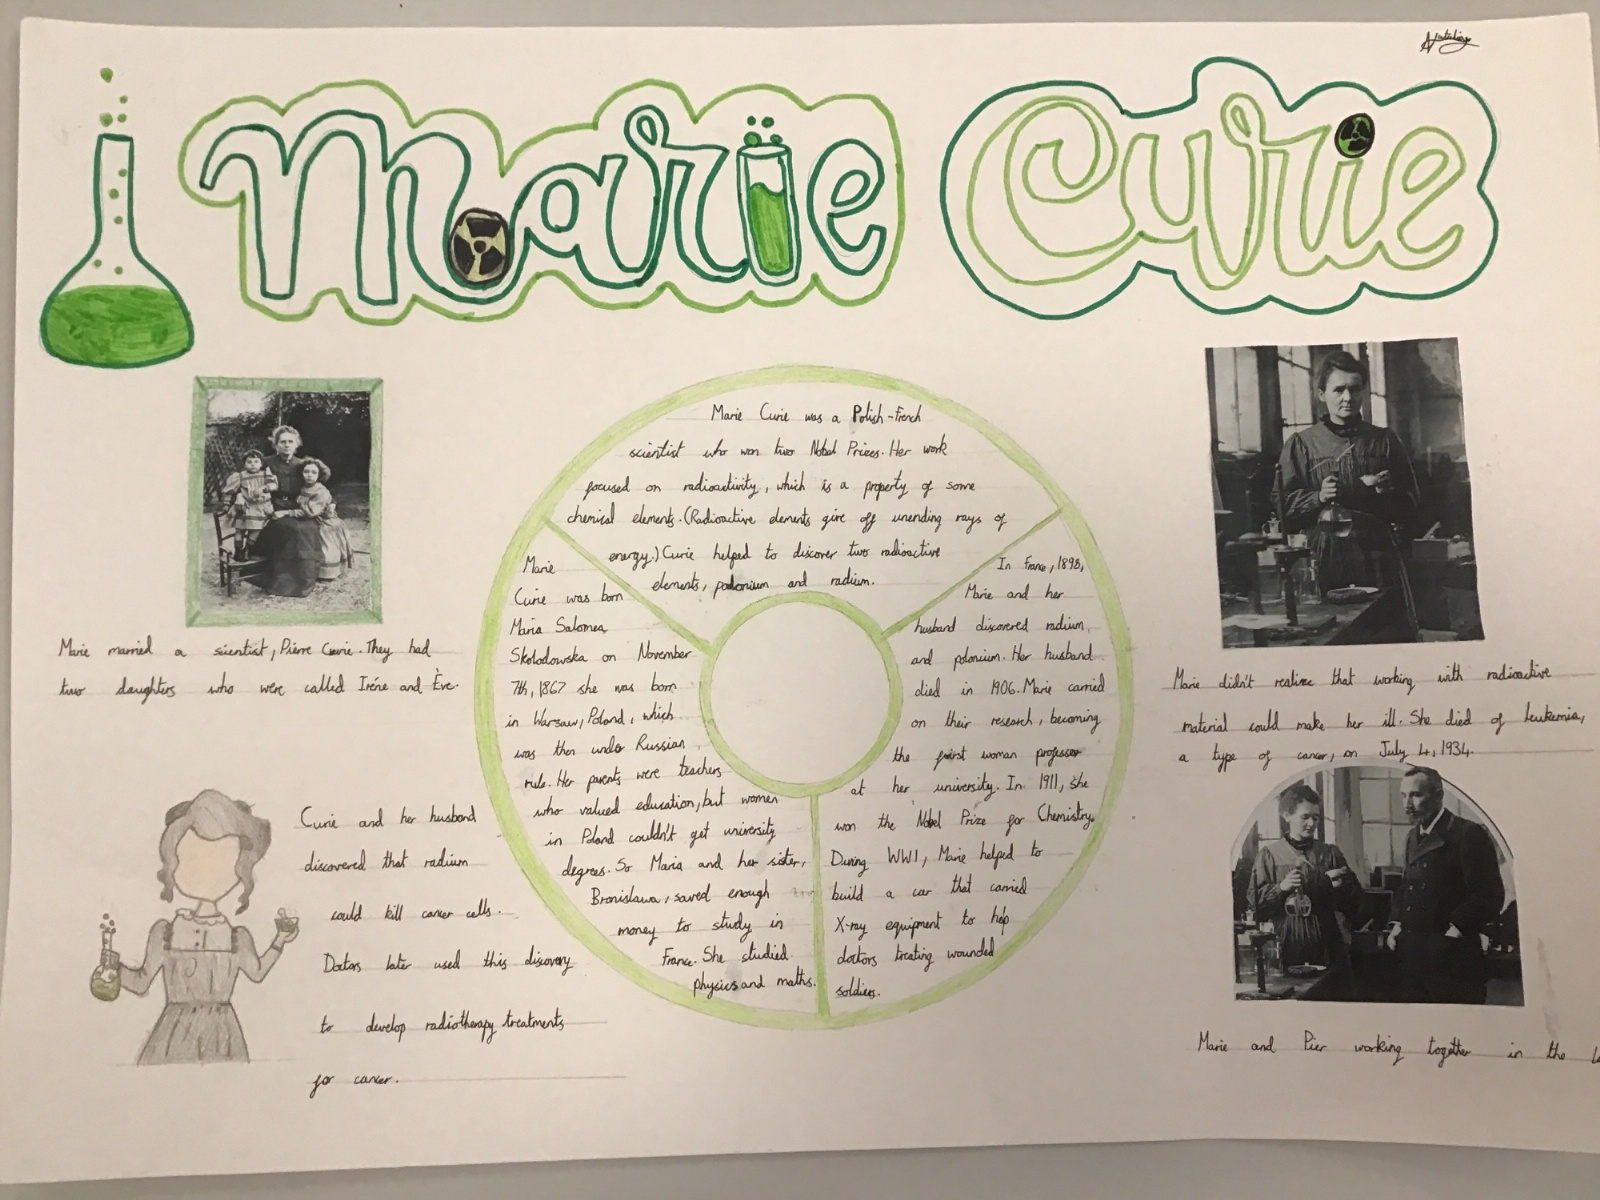 Marie Curie
Marie Curie was a Polish-French
scientist who won two Nobel Prizes. Her work
focused on radioactivity, which is a property of some
chemical elements. (Radioactive elements give off unending rays of
energy.) Curie helped to discover two radioactive
elements, polonium and radium.
Marie
Curie was born
Maria Salomea
Skolodowska on November
7th, 1867 she was born
in Warsaw, Poland, which
was then under Russian
rule. Her parents were teachers
who valued education, but women
in Poland couldn't get university
degrees. So Maria and her sister,
Bronislawa, saved enough
money to study in
France. She studied
physics and maths.
In France, 1898,
Marie and her
husband discovered radium
and polonium. Her husband
died in 1906. Marie carried
on their research, becoming
the first woman professor
at her university. In 1911, she
won the Nobel Prize for Chemistry.
During WW1, Marie helped to
build a car that carried
X-ray equipment to help
doctors treating wounded
soldiers.
Marie married a scientist, Pierre Curie. They had
two daughters who were called Iréne and Ève.
Curie and her husband
discovered that radium
could kill cancer cells.
Doctors later used this discovery
to develop radiotherapy treatments
for cancer.
Marie didn't realize that working with radioactive
material could make her ill. She died of leukemia,
a type of cancer, on July 4, 1934.
Marie and Pier working together in the